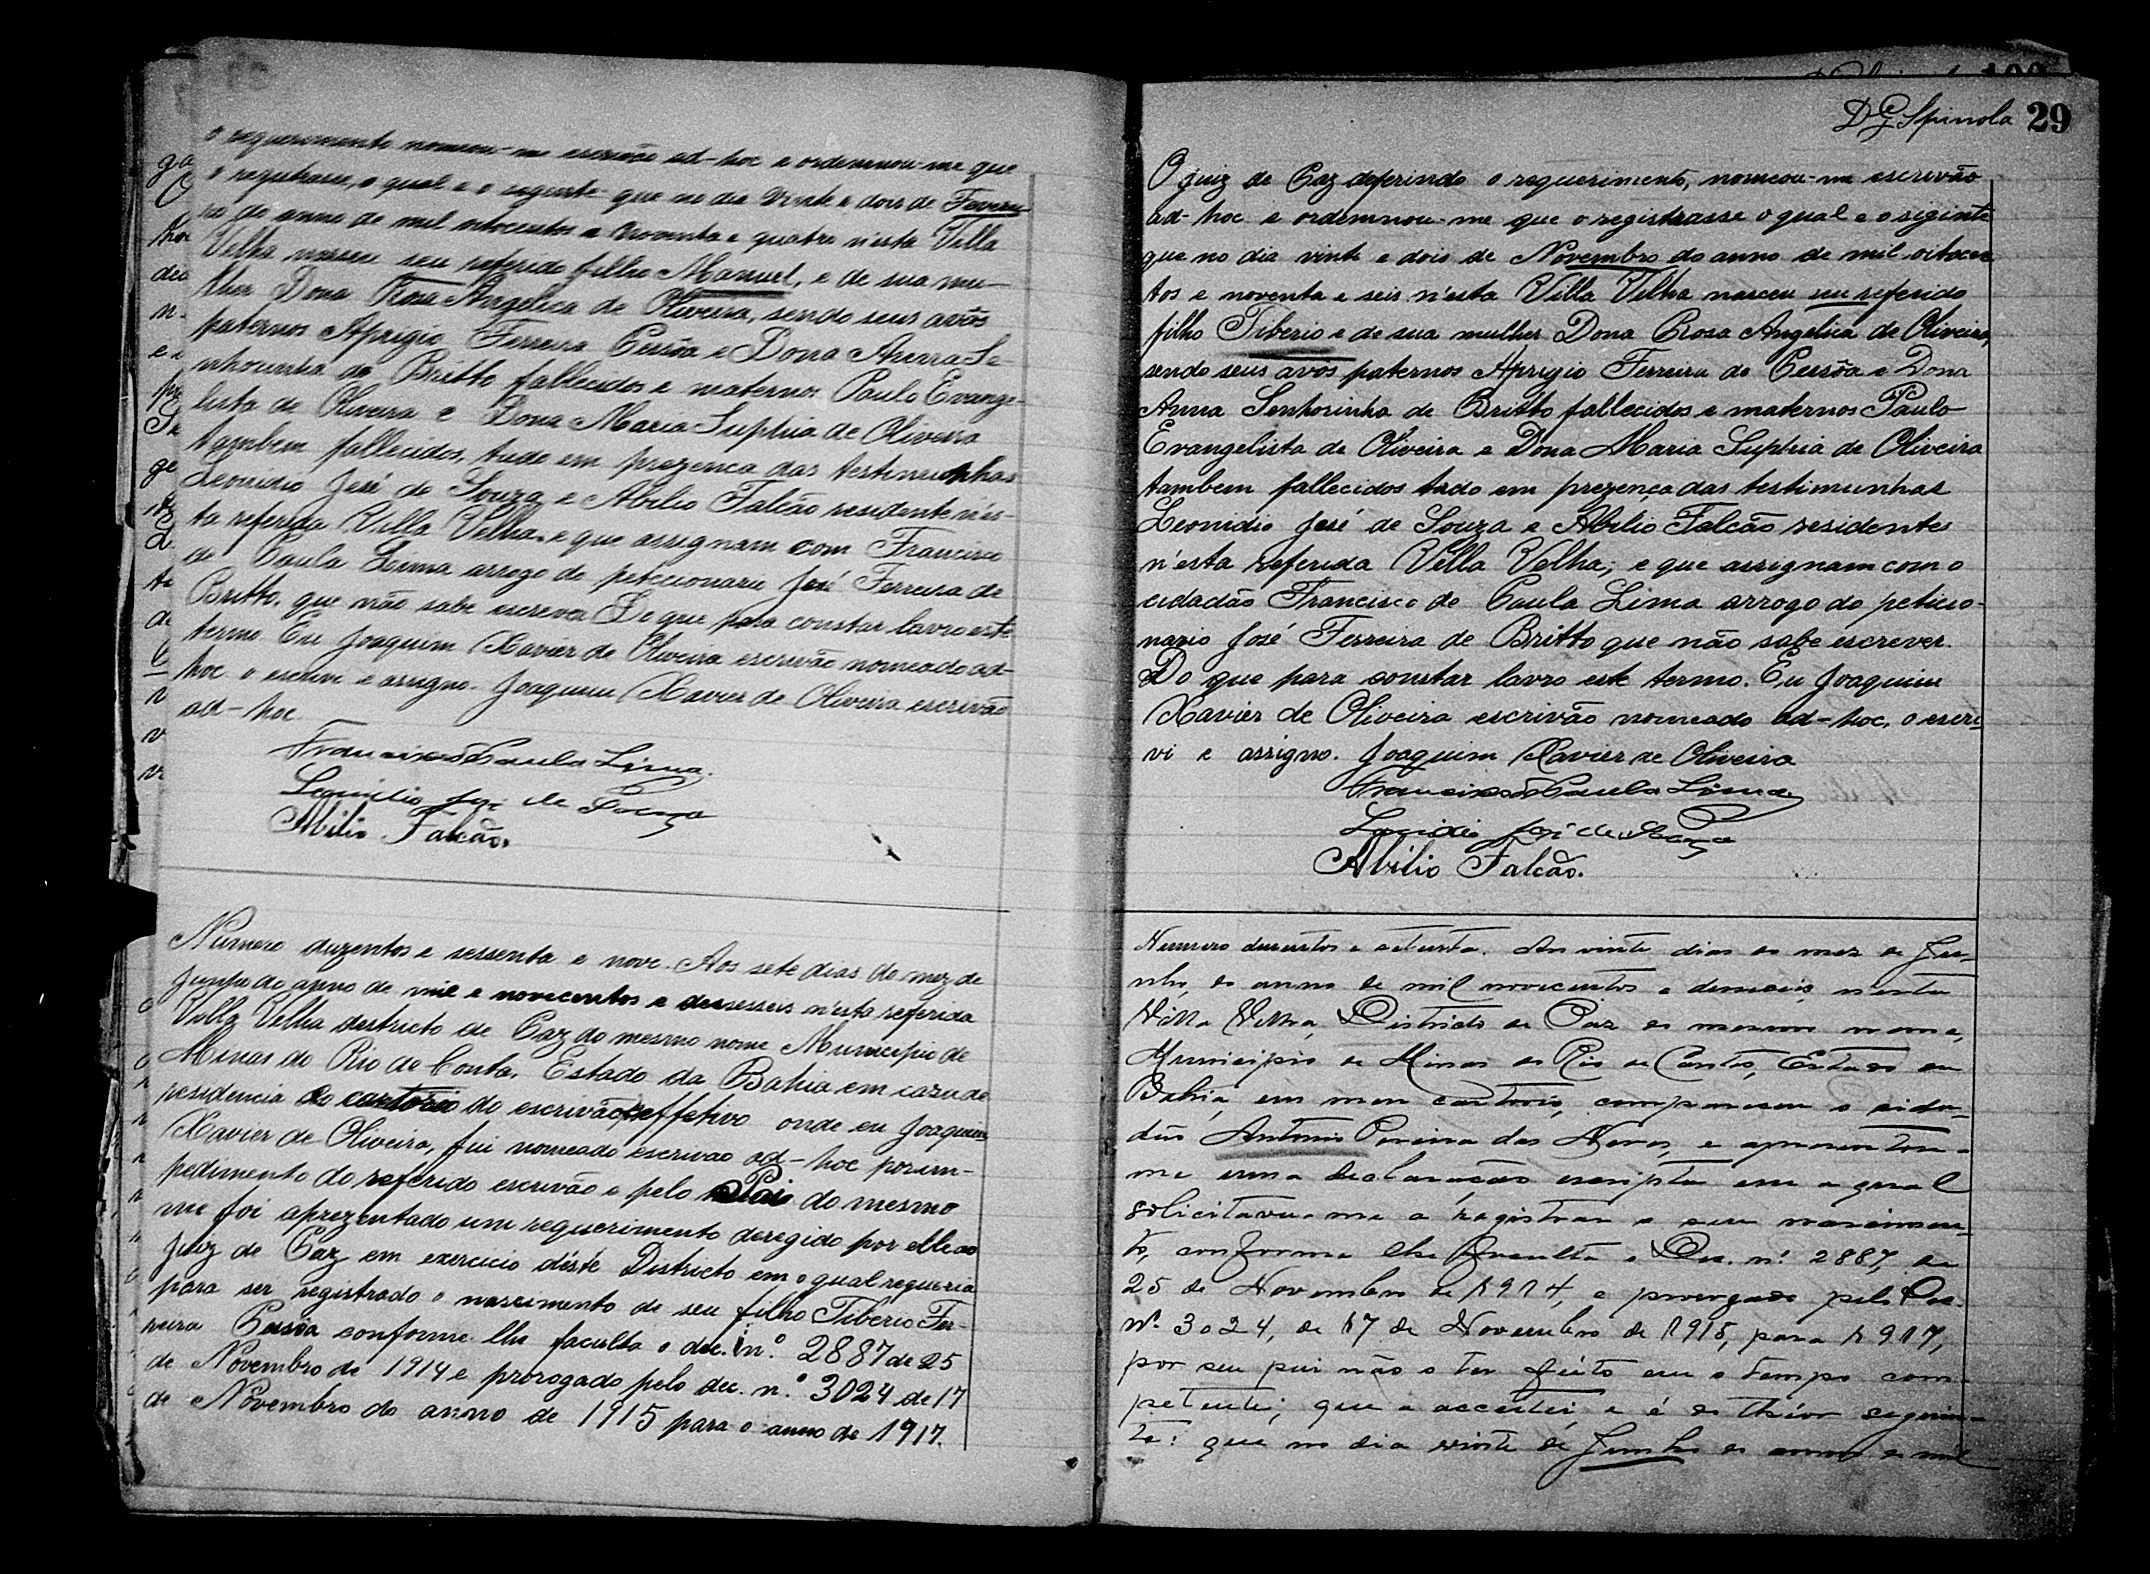 o requerimento nomeou-me escrivão ad-hoc e ordemnou-me que
o registrasse, o qual e o segente que no dia vinte e dois de Feverei
ro do anno de mil oitocentos e noventa e quatro n'esta Villa
Velha nasceu seu referido filho Manuel, e de sua mu-
lher Dona Rosa Angelica de Oliveira, sendo seus avôs
paternos Aprigio Ferreira Pessôa e Dona Anna Se-
nhorinha de Britto fallecidos e maternos Paulo Evange-
lista de Oliveira e Dona Maria Suphia de Oliveira
tambem fallecidos, tudo em prezenca das testimunhas
Leonidio José de Souza e Abilio Falcão residente n'es-
ta referida Villa Velha, e que assignam com Francisco
de Paula Lima arrogo do peticionario José Ferreira de
Britto, que não sabe escrever Do que para constar lavro este
termo Eu Joaquim Xavier de Oliveira escrivão nomeado ad-
hoc o escrivi e assigno. Joaquim Xavier de Oliveira escrivão
ad-hoc
Francisco de Paula Lima.
Leonidio José de Souza
Abilio Falcão.
Numero duzentos e sessenta e nove. Aos sete dias do mez de
Junho do anno de mil e novecentos e desesseis n'esta referida
Villa Velha destricto de Paz do mesmo nome Municipio de
Minas do Rio de Conta, Estado da Bahia em caza de
residencia do cartorio do escrivão effetivo onde eu Joaquim
Xavier de Oliveira, fui nomeado escrivão ad-hoc por im-
pedimento do referido escrivão e pelo Pai do mesmo
me foi aprezentado um requerimento deregido por elle ao
Juiz de Paz em exercicio déste Destricto em o qual requeria
para ser registrado o nascimento de seu filho Tiberio Fer-
reira Pessôa conforme lhe faculta o dec. n.º 2887 de 25
de Novembro de 1914 e prorogado pelo dec. n.º 3024 de 17
de Novembro do anno de 1915 para o anno de 1917.
D G Spinola 29
O juiz de Paz deferindo o requerimento, nomeou-me escrivão
ad-hoc e ordemnou-me que o registrasse o qual e o siginte
que no dia vinte e dois de Novembro do anno de mil oitocen
tos e noventa e seis n'esta Villa Velha nasceu seu referido
filho Tiberio e de sua mulher Dona Rosa Angelica de Oliveira,
sendo seus avôs paternos Aprigio Ferreira de Pessôa e Dona
Anna Senhorinha de Britto fallecidos e maternos Paulo
Evangelista de Oliveira e Dona Maria Suphia de Oliveira
tambem fallecidos tudo em prezença das testimunhas
Leonidio José de Souza e Abilio Falcão residentes
n'esta referida Villa Velha; e que assignam com o
cidadão Francisco de Paula Lima arrogo do peticio-
nario José Ferreira de Britto que não sabe escrever.
Do que para constar lavro este termo. Eu Joaquim
Xavier de Oliveira escrivão nomeado ad-hoc, o escri-
vi e assigno. Joaquim Xavier de Oliveira
Francisco de Paula Lima
Leonidio José de Souza
Abilio Falcão.
Numero dusentos e setenta. Aos vinte dias do mez de Ju-
nho, do anno de mil novecentos e deseseis, nesta
Villa Velha, Districto de Paz do mesmo nome,
Municipio de Minas do Rio de Contas, Estado da
Bahia, em meu cartorio, compareceu o cida-
dão Antonio Pereira das Neves, e apresentou-
me uma declaração escripta em a qual
solicitava-me a registrar o seu nascimen-
to, conforme lhe faculta o Dec. n.º 2887, de
25 de Novembro de 1914, e prorogado pelo Dec.
Nº 3024, de 17 de Novembro de 1915, para 1917,
por seu pai não o ter feito em o tempo com-
petente; que a acceitei, e é do theor seguin-
te: que no dia vinte de Junho do anno de mil